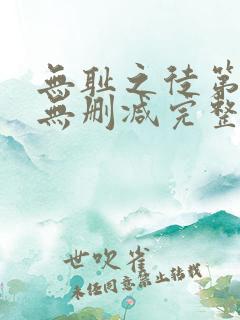 無耻之徒第
無删减完整
世吹雀
未经同意禁止转载